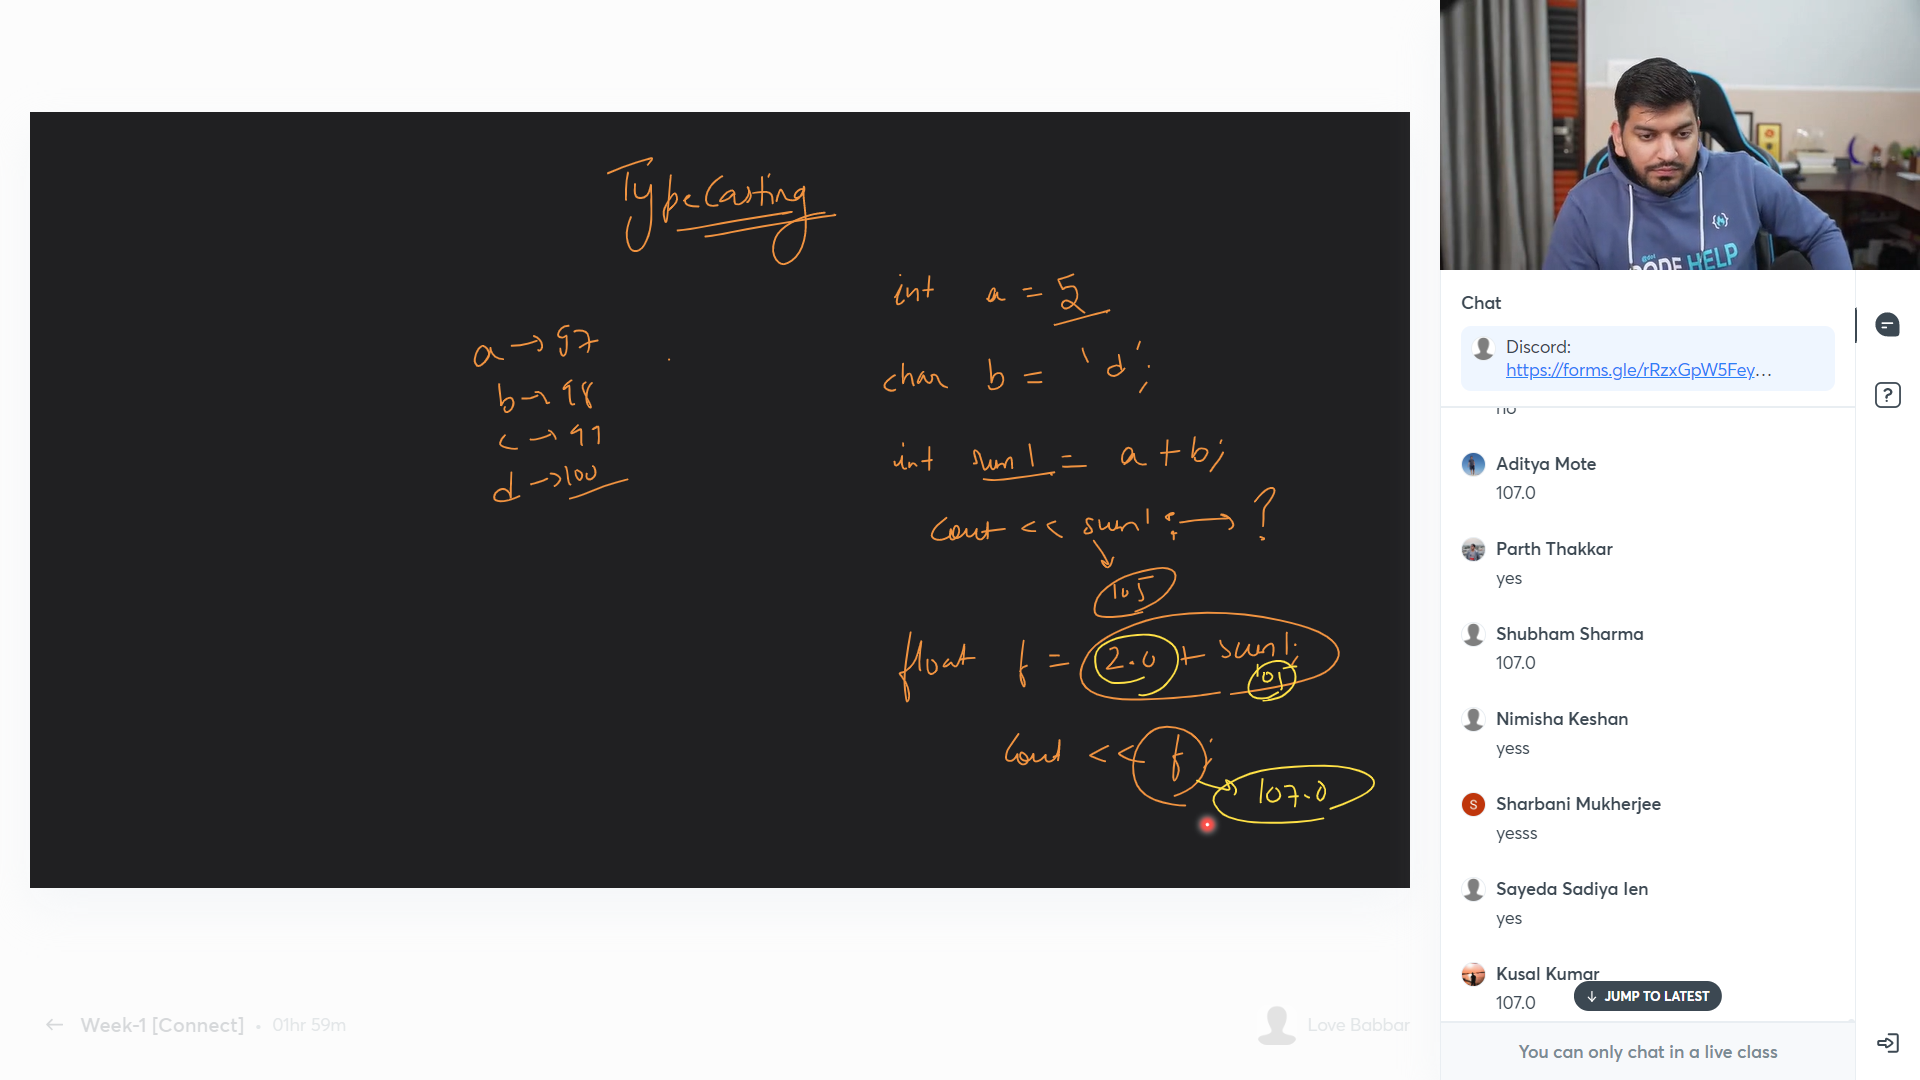 TypeCasting
a → 97
b → 98
c → 99
d → 100
int a = 5
char b = 'd';
int sum1 = a + b;
Cout << sum1 ; → ?
105
float f = 2.0 + sum1;
105
Cout << f;
107.0
CODE HELP
Week-1 [Connect] • 01hr 59m
Love Babbar
Chat
Discord:
https://forms.gle/rRzxGpW5Fey...
no
Aditya Mote
107.0
Parth Thakkar
yes
Shubham Sharma
107.0
Nimisha Keshan
yess
S
Sharbani Mukherjee
yesss
Sayeda Sadiya Ien
yes
Kusal Kumar
107.0
↓ JUMP TO LATEST
You can only chat in a live class
?